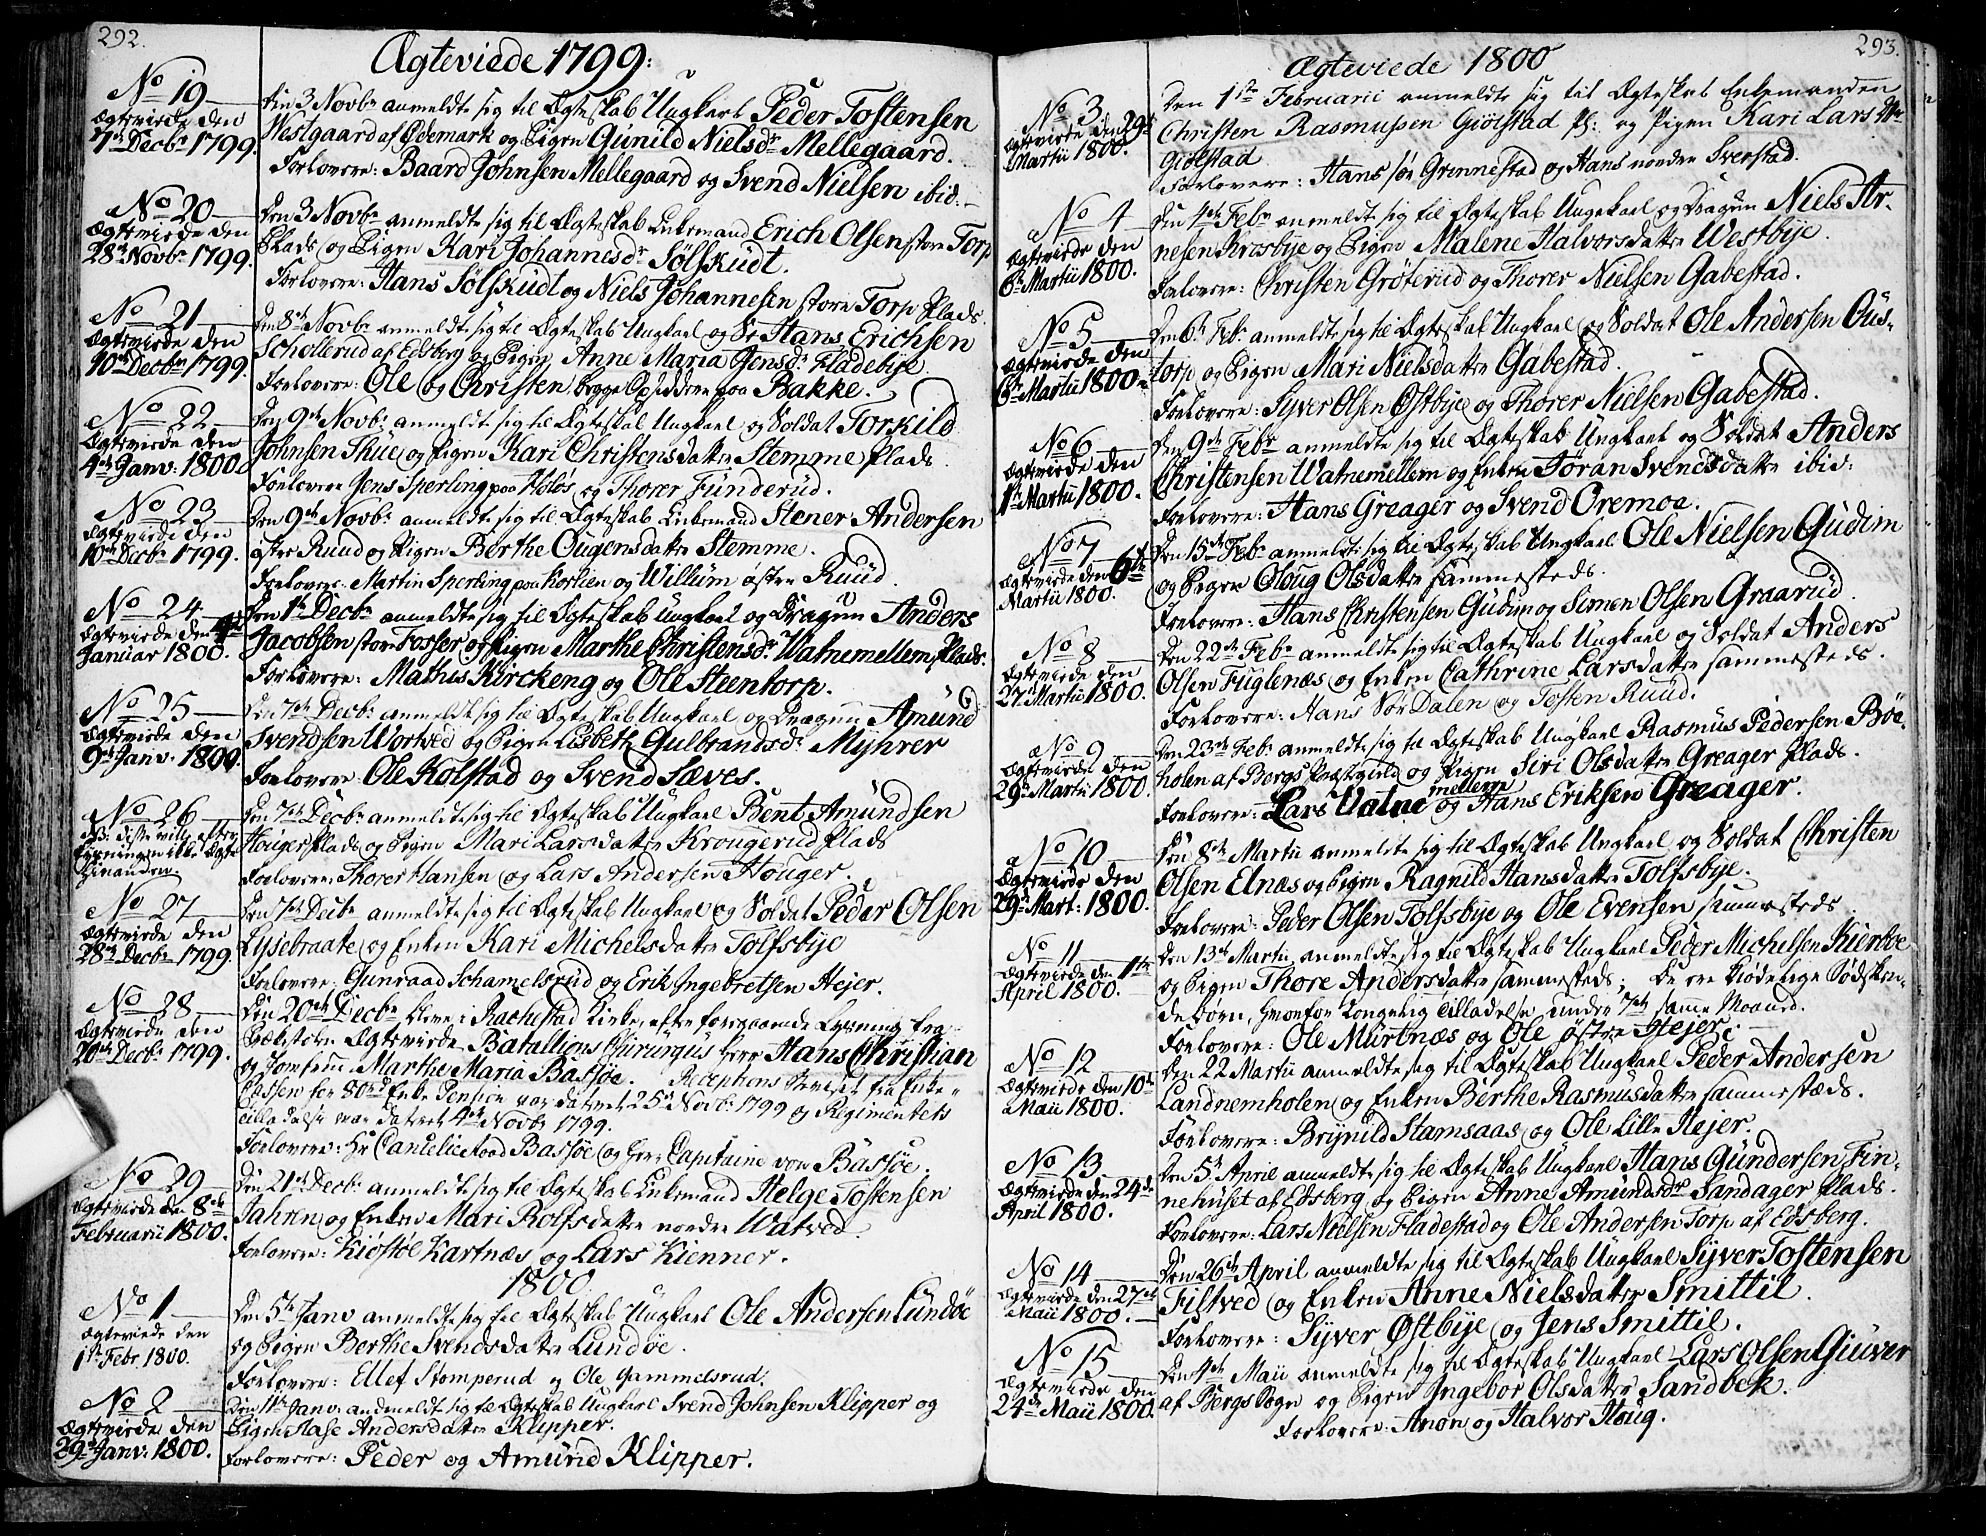 292.
Ægteviede 1799:
No 19
Ægteviede den
7de Decbr 1799.
Den 3 Novbr anmeldte sig til Ægteskab Ungkarl Peder Tostensen
Westgaard af Ødemark og Pigen Gunild Nielsdr Mellegaard.
Forlovere: Baard Johnsen Mellegaard og Svend Nielsen ibid:
No 20
Ægteviede den
28de Novbr 1799.
Den 3 Novbr anmeldte sig til Ægteskab Enkemand Erich Olsen store Torp
Plads og Pigen Kari Johannesdr Sølfskudt.
Forlovere: Hans Sølfskudt og Niels Johannesen store Torp Plads.
No 21
Ægteviede den
10de Decbr 1799.
Den 8de Novbr anmeldte sig til Ægteskab Ungkarl og Sr Hans Erichsen
Schollerud af Edsberg og Pigen Anne Maria Jensdr Fladebye.
Forlovere: Ole og Christen, begge Opsiddere paa Bakke.
No 22
Ægteviede den
4de Janv: 1800.
Den 9de Novbr anmeldte sig til Ægteskab Ungkarl og Soldat Torkild
Johnsen Thue og Pigen Kari Christensdatter Stemme Plads.
Forlovere Jens Sperling paa Holøs og Thorer Funderud.
No 23
Ægteviede den
10de Decbr 1799.
Den 9de Novbr anmeldte sig til Ægteskab Enkemand Stener Andersen
østre Ruud og Pigen Berthe Ougensdatter Stemme.
Forlovere: Martin Sperling paa Kortien og Willum østre Ruud.
No 24
Ægteviede den 4de
Januar 1800.
Den 1te Decbr anmeldte sig til Ægteskab Ungkarl og Dragun Anders
Jacobsen store Fosser og Pigen Marthe Christensdr Watnemellem Plads.
Forlovere: Mathis Kirckeng og Ole Steentorp.
No 25
Ægteviede den
9de Janv. 1800.
Den 7de Decbr anmeldte sig til Ægteskab Ungkarl og Dragun Amund
Svendsen Wortved og Pigen Lisbeth Gulbrandsdr Myhrer
Forlovere: Ole Kolstad og Svend Sæves.
No 26
NB. disse ville efter
Lysningen ikke Ægte
hinanden.
Den 7de Decbr anmeldte sig til Ægteskab Ungkarl Bent Amundsen
Hougerplads og Pigen Mari Larsdatter Krougerud Plads
Forlovere: Thorer Hansen og Lars Andersen Houger.
No 27
Ægteviede den
28de Decbr 1799.
Den 7de Decbr anmeldte sig til Ægteskab Ungkarl og Soldat Peder Olsen
Lyssebraate og Enken Kari Michelsdatter Tolfsbye
Forlovere: Gunraad Schamelsrud og Erik Ingebretsen Hejer.
No 28
Ægteviede den
20de Decbr 1799.
Den 20de Decbr bleve i Rachestad Kirke, efter foregaaende Lysning fra
Prækestolen Ægteviede Bataillons Chirurgus Herr Hans Christian
og Jomfrue Marthe Maria Bassøe. Receptions Beviset fra Enke-
Cassen for 80rd Enke Pension var datert 25de Novbr 1799 og Regimentets
Tilladelse var datert 4de Novbr 1799.
Forlovere: Hr Cancelieraad Bassøe og Herr Capitaine von Bassøe.
No 29
Ægteviede den 8de
Februarii 1800.
Den 21de Decbr anmeldte sig til Ægteskab Enkemand Helge Tostensen
Jahren og Enken Mari Rolfsdatter nordre Watved.
Forlovere: Kiøstøl Kartnæs og Lars Kienner.
1800.
No 1
Ægteviede den
1te Febr. 1800.
Den 5te Janv anmeldte sig til Ægteskab Ungkarl Ole Andersen Lundøe
og Pigen Berthe Svendsdatter Lundøe.
Forlovere: Ellef Stomperud og Ole Gammelsrud.
No 2
Ægteviede den
29de Janv: 1800.
Den 11te Janv: anmeldte sig til Ægteskab Ungkarl Svend Johnsen Klipper og
Pigen Aase Andersdatter Klipper.
Forlovere: Peder og Amund Klipper.
293.
Ægteviede 1800
No 3
Ægteviede den 29de
Martii 1800.
Den 1ste Februarii anmeldte sig til Ægteskab Enkemanden
Christen Rasmussen Giølstad Pl: og Pigen Kari Larsdtr
Giølstad
Forlovere: Hans søn Grennestad og Hans nordre Sverstad.
No 4
Ægteviede den
6te Martii 1800.
Den 4de Febr anmeldte sig til Ægteskab Ungkarl og Dragun Niels Ar-
nesen Krosbye og Pigen Malene Halvorsdatter Westbye.
Forlovere: Christen Grøterud og Thorer Nielsen Gabestad.
No 5
Ægteviede den
6te Martii 1800.
Den 6te Febr anmeldte sig til Ægteskab Ungkarl og Soldat Ole Andersen Ous-
torp og Pigen Mari Nielsdatter Gabestad.
Forlovere: Syver Olsen Østbye og Thorer Nielsen Gabestad.
No 6
Ægteviede den
1te Martii 1800.
Den 9de Febr anmeldte sig til Ægteskab Ungkarl og Soldat Anders
Christensen Watnemellem og Enken Jøran Svendsdatter ibid:
Forlovere: Hans Greager og Svend Oremoe.
No 7
Ægteviede den 6te
Martii 1800.
Den 15de Febr anmeldte sig til Ægteskab Ungkarl Ole Nielsen Gudim
og Pigen Oloug Olsdatter sammesteds.
Forlovere: Hans Christensen Gudim og Simen Olsen Graarud.
No 8
Ægteviede den
27de Martii 1800.
Den 22de Febr anmeldte sig til Ægteskab Ungkarl og Soldat Anders
Olsen Fuglenæs og Enken Cathrine Larsdatter sammesteds.
Forlovere: Hans Sør Dalen og Tosten Ruud.
No 9
Ægteviede den
29de Martii 1800.
Den 23de Febr anmeldte sig til Ægteskab Ungkarl Rasmus Pedersen Bøe-
holen af Borgs Præstegield og Pigen Siri Olsdatter Greager Plads.
Forlovere: Lars Watne mellem og Hans Eriksen Greager.
No 10
Ægteviede den
29de Mart: 1800.
Den 8de Martii anmeldte sig til Ægteskab Ungkarl og Soldat Christen
Olsen Elnæs og Pigen Ragnild Hansdatter Tolfsbye.
Forlovere: Peder Olsen Tolfsbye og Ole Evensen sammesteds.
No 11
Ægteviede den 1te
April 1800.
Den 13de Martii anmeldte sig til Ægteskab Ungkarl Peder Michelsen Kierboe
og Pigen Thore Andersdatter sammesteds; De ere kiødelige Sødsken-
de børn, hvorfor Kongelig Tilladelse, under 7de samme Maaned.
Forlovere: Ole Murtnæs og Ole østre Hejer.
No 12
Ægteviede den 10de
Maii 1800.
Den 22 Martii anmeldte sig til Ægteskab Ungkarl Peder Andersen
Landnemholen og Enken Berthe Rasmusdatter sammesteds.
Forlovere: Brynild Stamsaas og Ole Lille Hejer.
No 13
Ægteviede den 24de
April 1800.
Den 5te April anmeldte sig til Ægteskab Ungkarl Hans Gundersen Fin-
nehuset af Edsberg og Pigen Anne Amundsdr Sandager Plads.
Forlovere: Lars Nielsen Fladestad og Ole Andersen Torp af Edsberg.
No 14
Ægteviede den 27de
Maii 1800.
Den 26de April anmeldte sig til Ægteskab Ungkarl Syver Tostensen
Filtved og Enken Anne Nielsdatter Smittil.
Forlovere: Syver Østbye og Jens Smittil.
No 15
Ægteviede den
24de Maii 1800.
Den 4de Maii anmeldte sig til Ægteskab Ungkarl Lars Olsen Giuver
af Bergs Sogn og Pigen Ingebor Olsdatter Sandbek.
Forlovere: Anon og Halvor Houg.